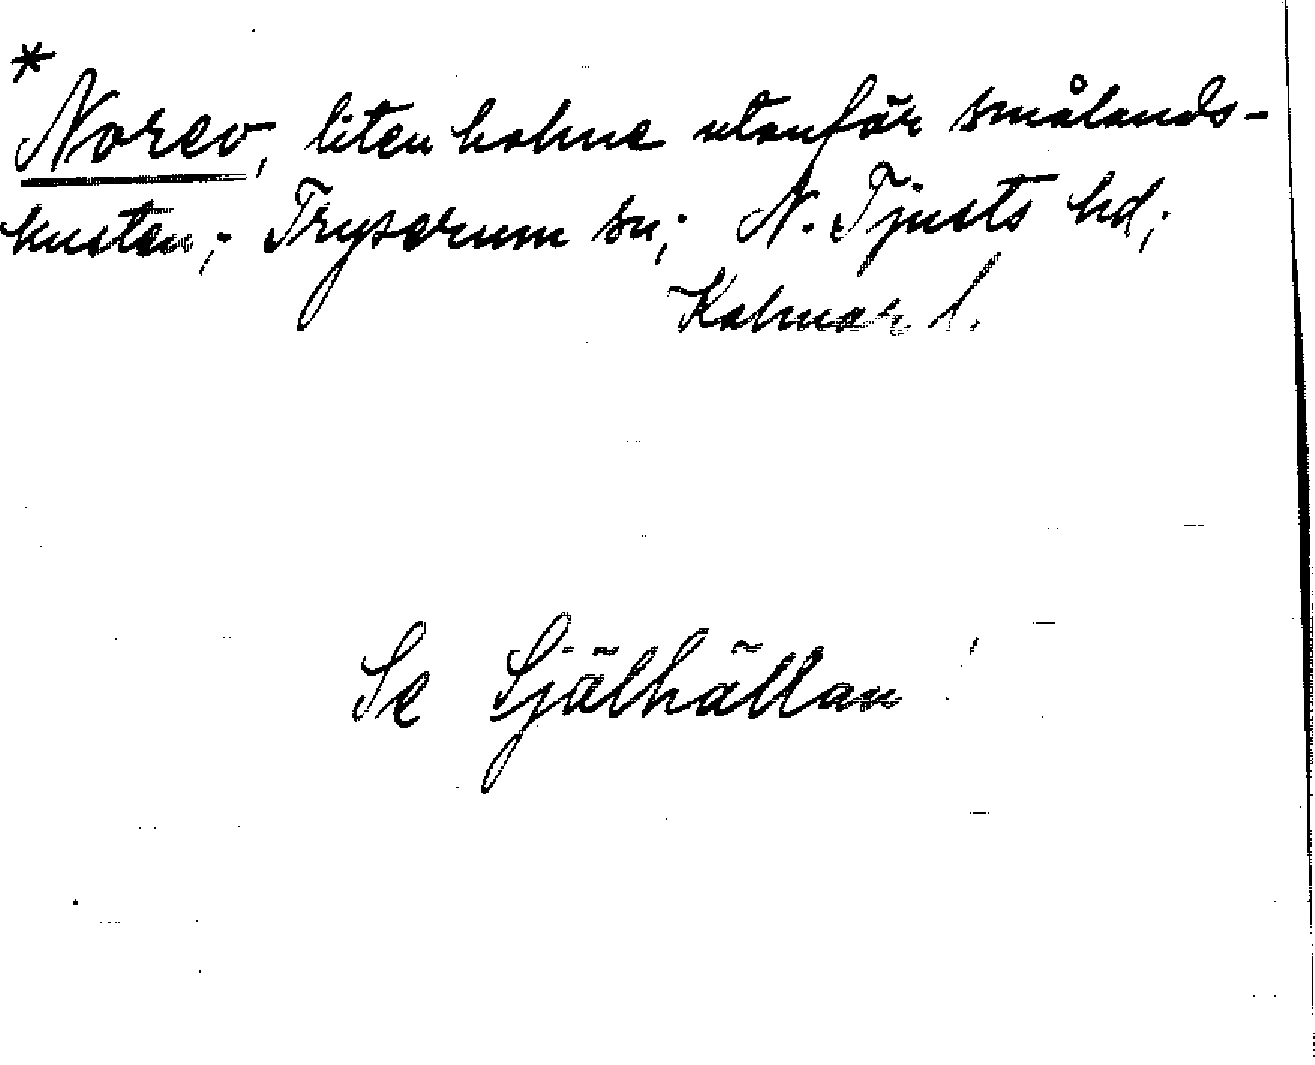 * Norev, liten holme utanför smålands-
kusten; Tryserum sn; N. Tjusts hd;
Kalmar l.
Se Själhällan